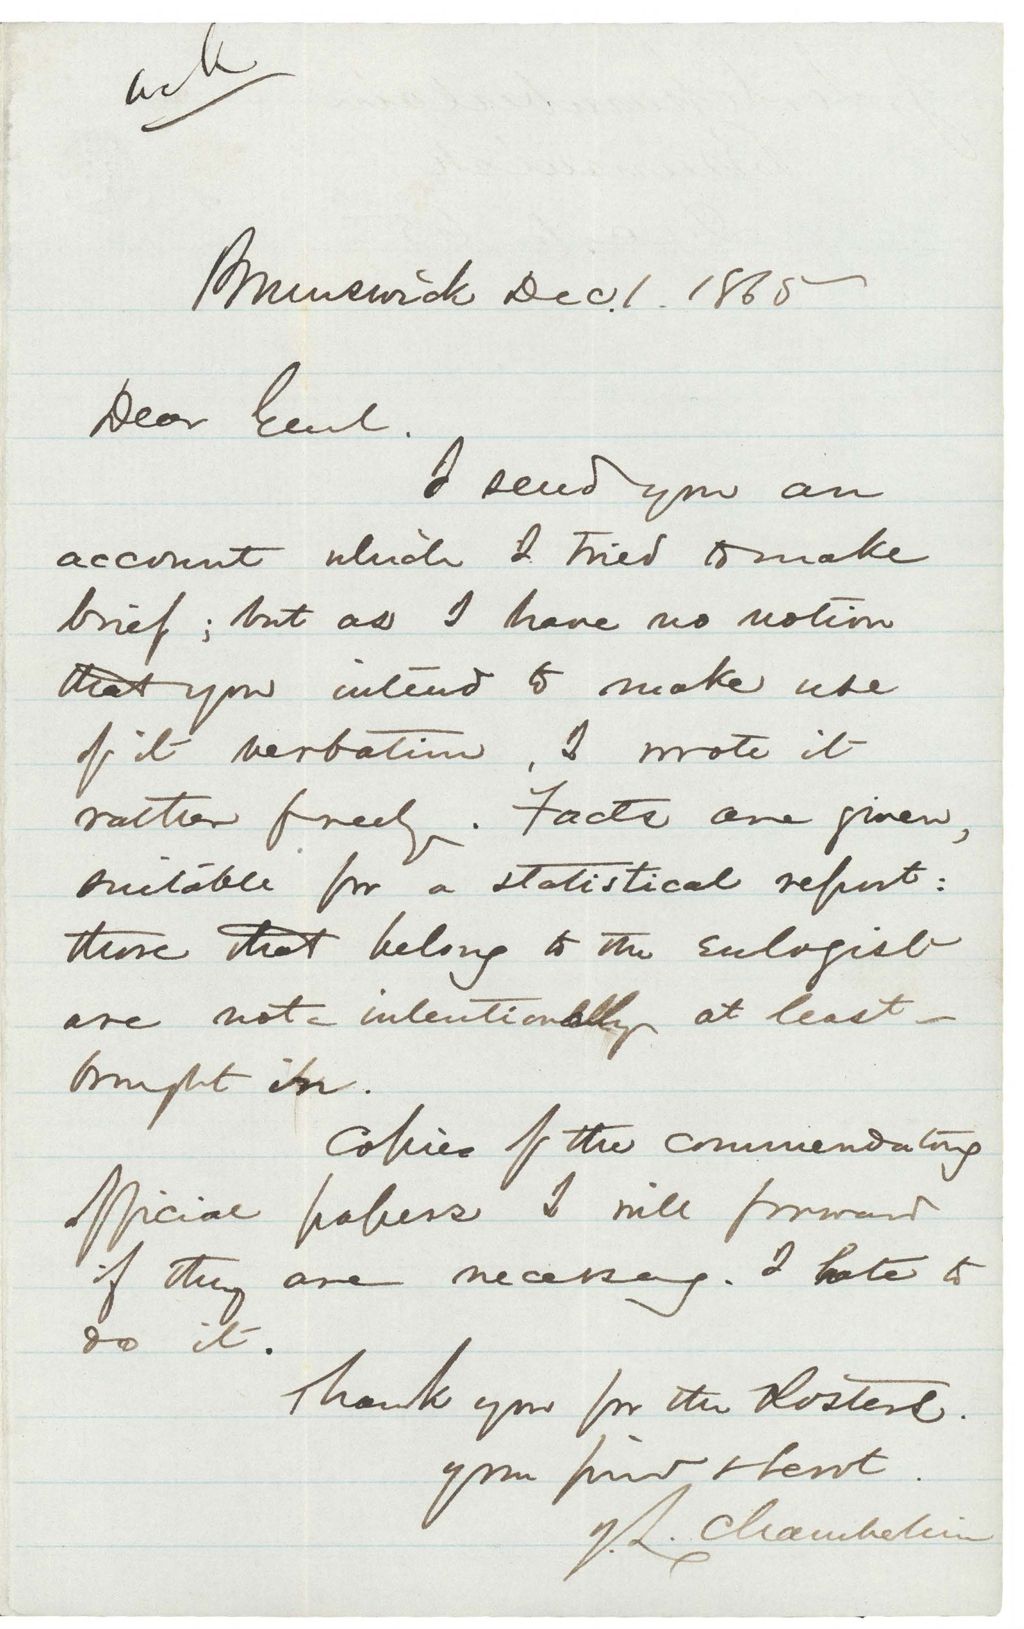 ack
Brunswick Dec. 1. 1865
Dear Genl.
I send you an
account which I tried to make
brief; but as I have no notion
that you intend to make use
of it verbatim, I wrote it
rather freely. Facts are given,
suitable for a statistical report:
those that belong to the Eulogist
are not - intentionally at least -
brought in.
Copies of the commendatory
official papers I will forward
if they are necessary. I hate to
do it.
Thank you for the Rosters.
your friend & servt.
J. L. Chamberlain